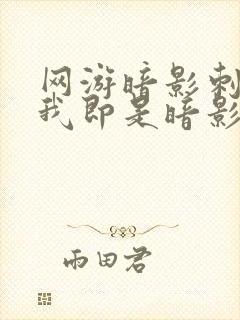 网游暗影刺
我即是暗影
雨田君